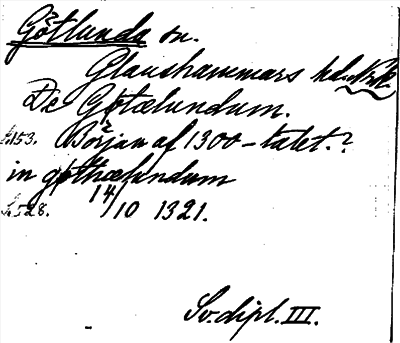 Götlunda sn.
Glanshammars hd. Nrk
De Gøtælundum.
s. 153. Början af 1300-talet.?
in gøthælundum
s. 528. 14/10 1321.
Sv. dipl. III.